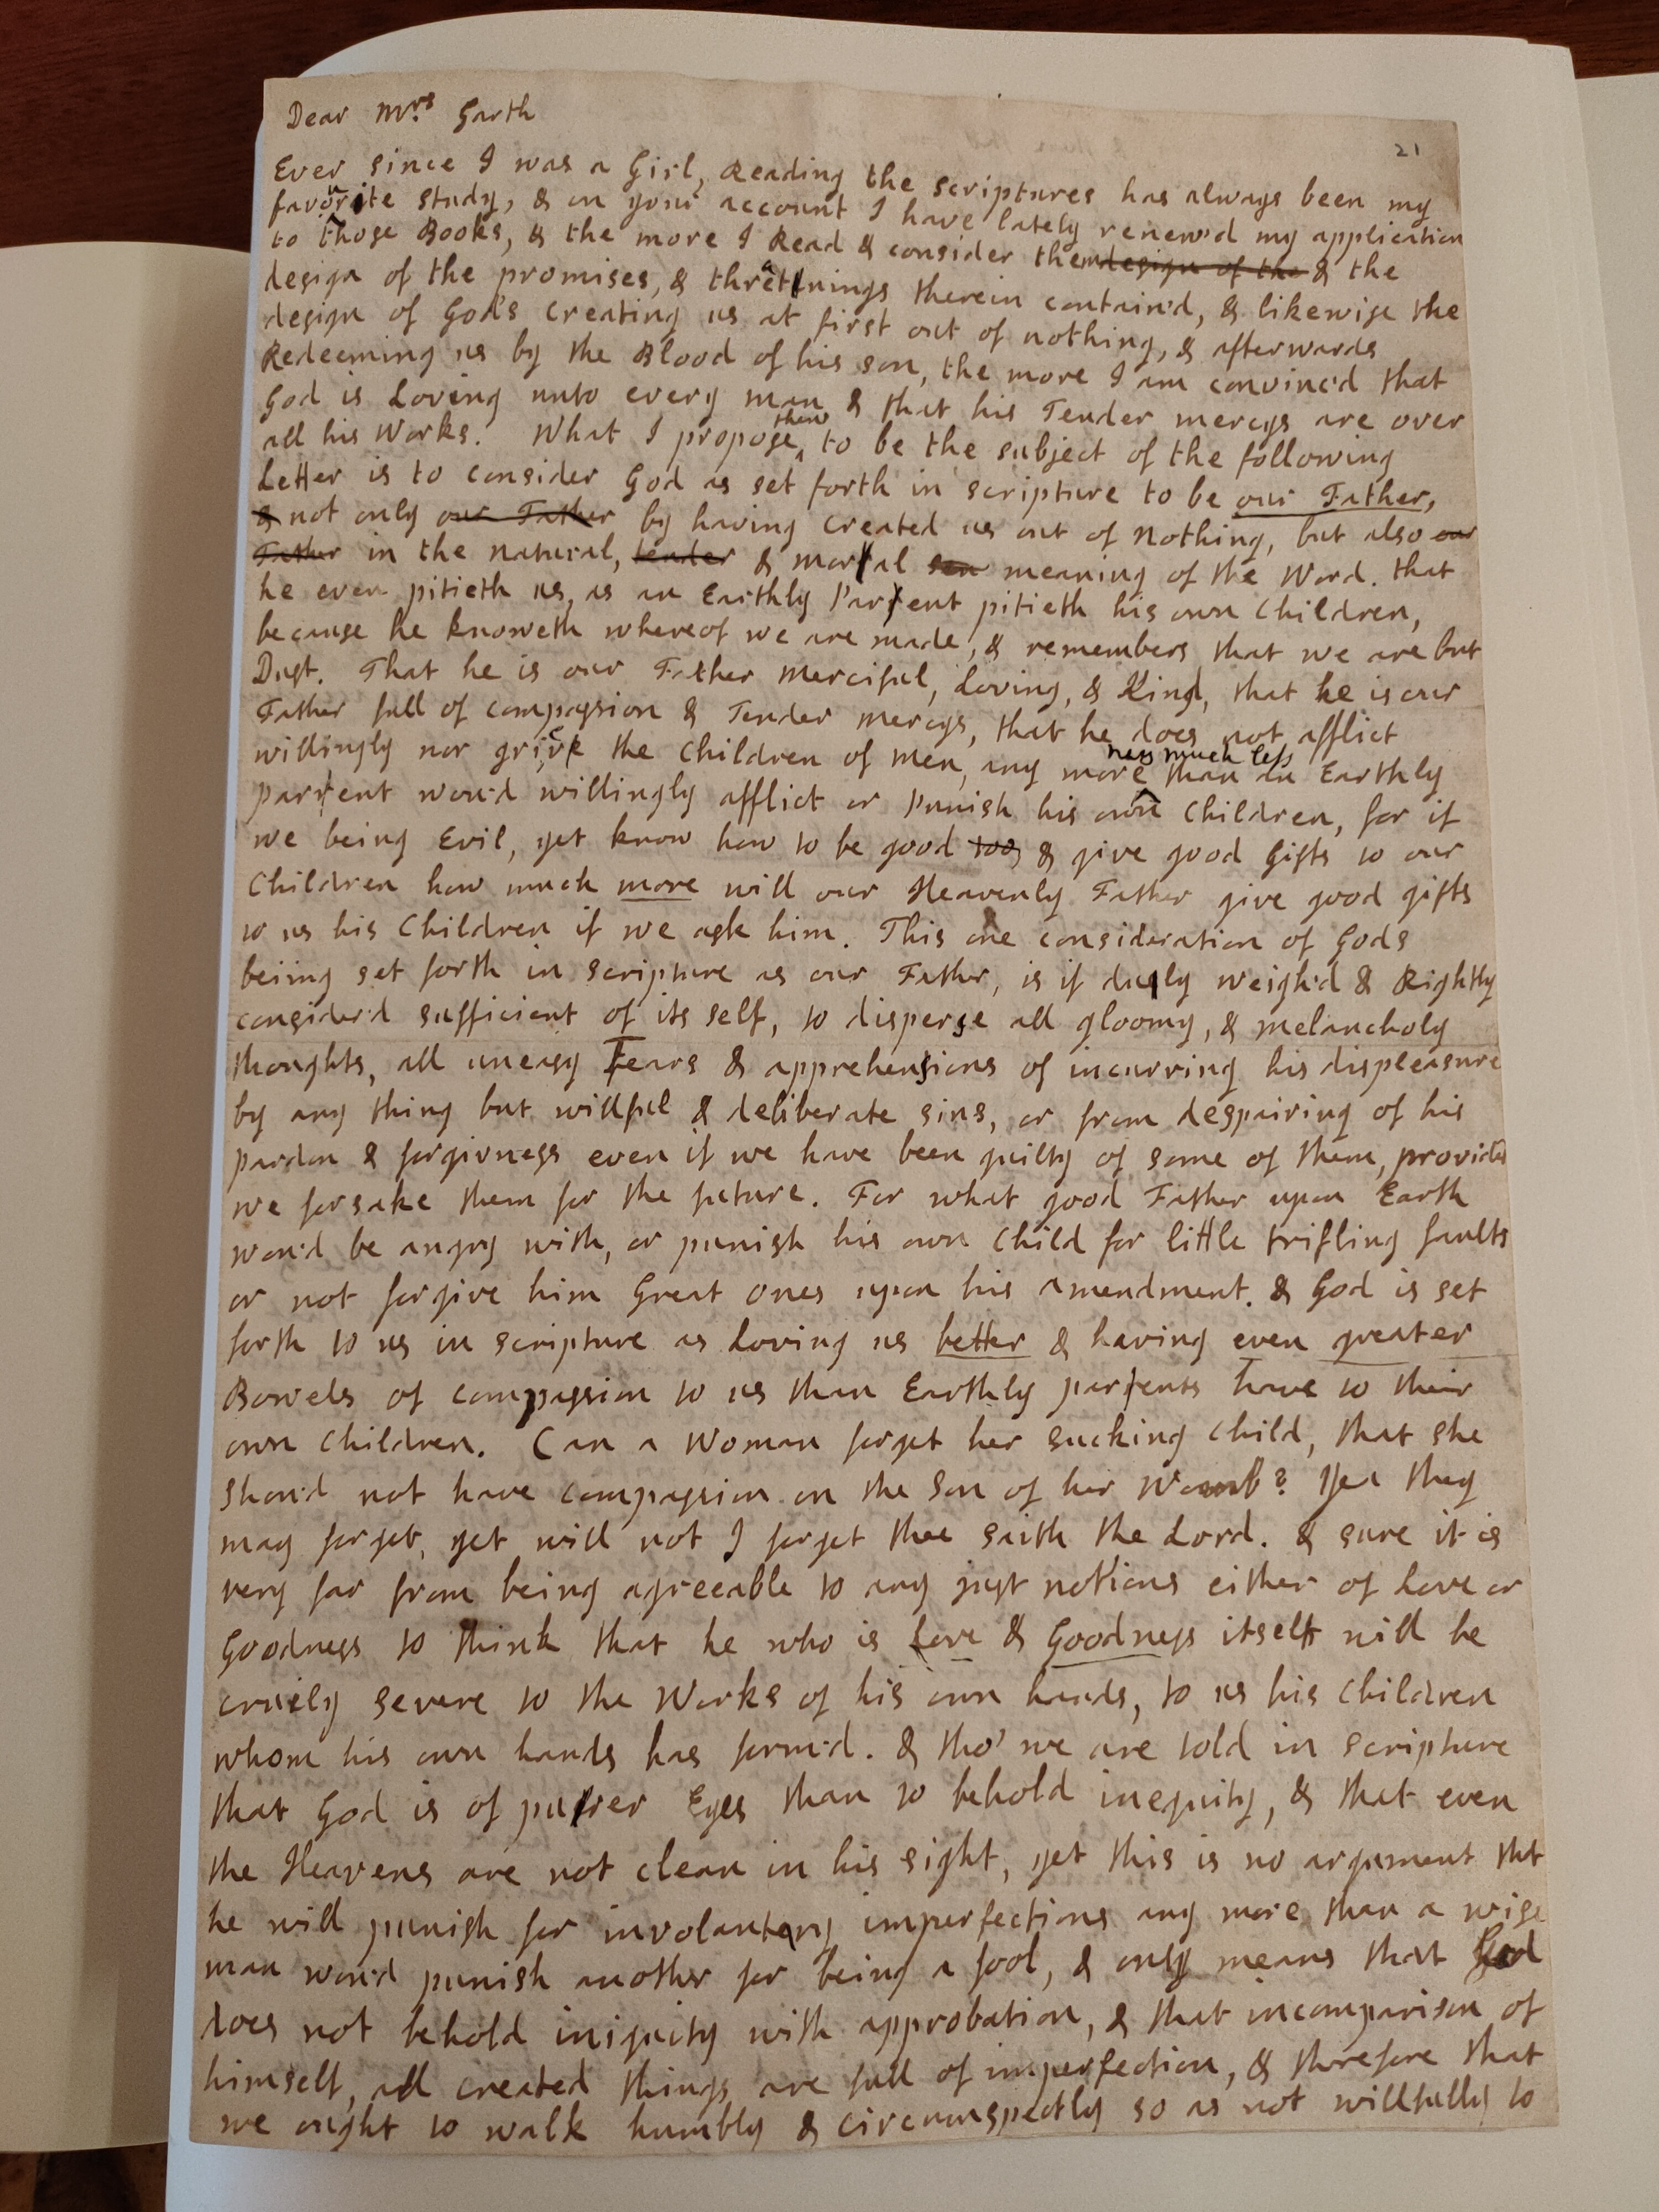 Dear Mrs. Garth
21
Ever since I was a Girl, Reading the scriptures has always been my
favourite study, & on your account I have lately renew'd my application
to those Books, & the more I Read & consider them design of the & the
design of the promises, & threatnings therein contain'd, & likewise the
design of God's creating us at first out of nothing, & afterwards
Redeeming us by the Blood of his son, the more I am convinc'd that
God is Loving unto every man & that his Tender mercys are over
all his Works. What I propose then to be the subject of the following
Letter is to consider God as set forth in scripture to be our Father,
& not only our Father by having created us out of Nothing, but also our
Father in the natural, tender & moral sen meaning of the Word. that
he even pitieth us, as an Earthly Parent pitieth his own Children,
because he knoweth whereof we are made, & remembers that we are but
Dust. That he is our Father Merciful, Loving, & Kind, that he is our
Father full of compassion & Tender mercys, that he does not afflict
willingly nor grieve the Children of Men, any more nay much less than an Earthly
Parent wou'd willingly afflict or Punish his own Children, for if
we being Evil, yet know how to be good too & give good Gifts to our
Children how much more will our Heavenly Father give good gifts
to us his Children if we ask him. This one consideration of Gods
beiing set forth in scripture as our Father, is if duly weigh'd & Rightly
consider'd sufficient of its self, to disperse all gloomy, & melancholy
thoughts, all uneasy Fears & apprehensions of incurring his displeasure
by any thing but willful & deliberate sins, or from despairing of his
pardon & forgivness even if we have been guilty of some of them, provided
we forsake them for the future. For what good Father upon Earth
wou'd be angry with, or punish his own Child for little trifling faults
or not forgive him Great ones upon his amendment. & God is set
forth to us in scripture as Loving us better & having even greater
Bowels of compassion to us than Earthly parents have to their
own Children. Can a Woman forget her sucking child, that she
shou'd not have compassion on the Son of her Womb? Yea they
may forget, yet will not I forget thee saith the Lord. & sure it is
very far from being agreeable to any just notions either of Love or
Goodness to think that he who is Love & Goodness itself will be
cruely severe to the Works of his own hands, to us his children
whom his own hands has form'd. & tho' we are told in scripture
that God is of purer Eyes than to behold inequity, & that even
the Heavens are not clean in his sight, yet this is no argument tht
he will punish for involantary imperfections any more than a wise
man wou'd punish another for being a fool, & only means that God
does not behold iniquity with approbation, & that incomparison of
himself, all created things are full of imperfection, & therefore that
we ought to walk humbly & circumspectly so as not willfully to